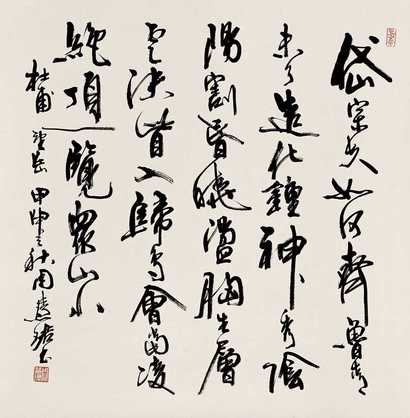 岱宗夫如何齊魯青
未了造化鍾神秀陰
陽割昏曉盪胸生層
雲決眥入歸鳥會當凌
絕頂一覽眾山小
杜甫望岳 甲申之秋周慧珺書